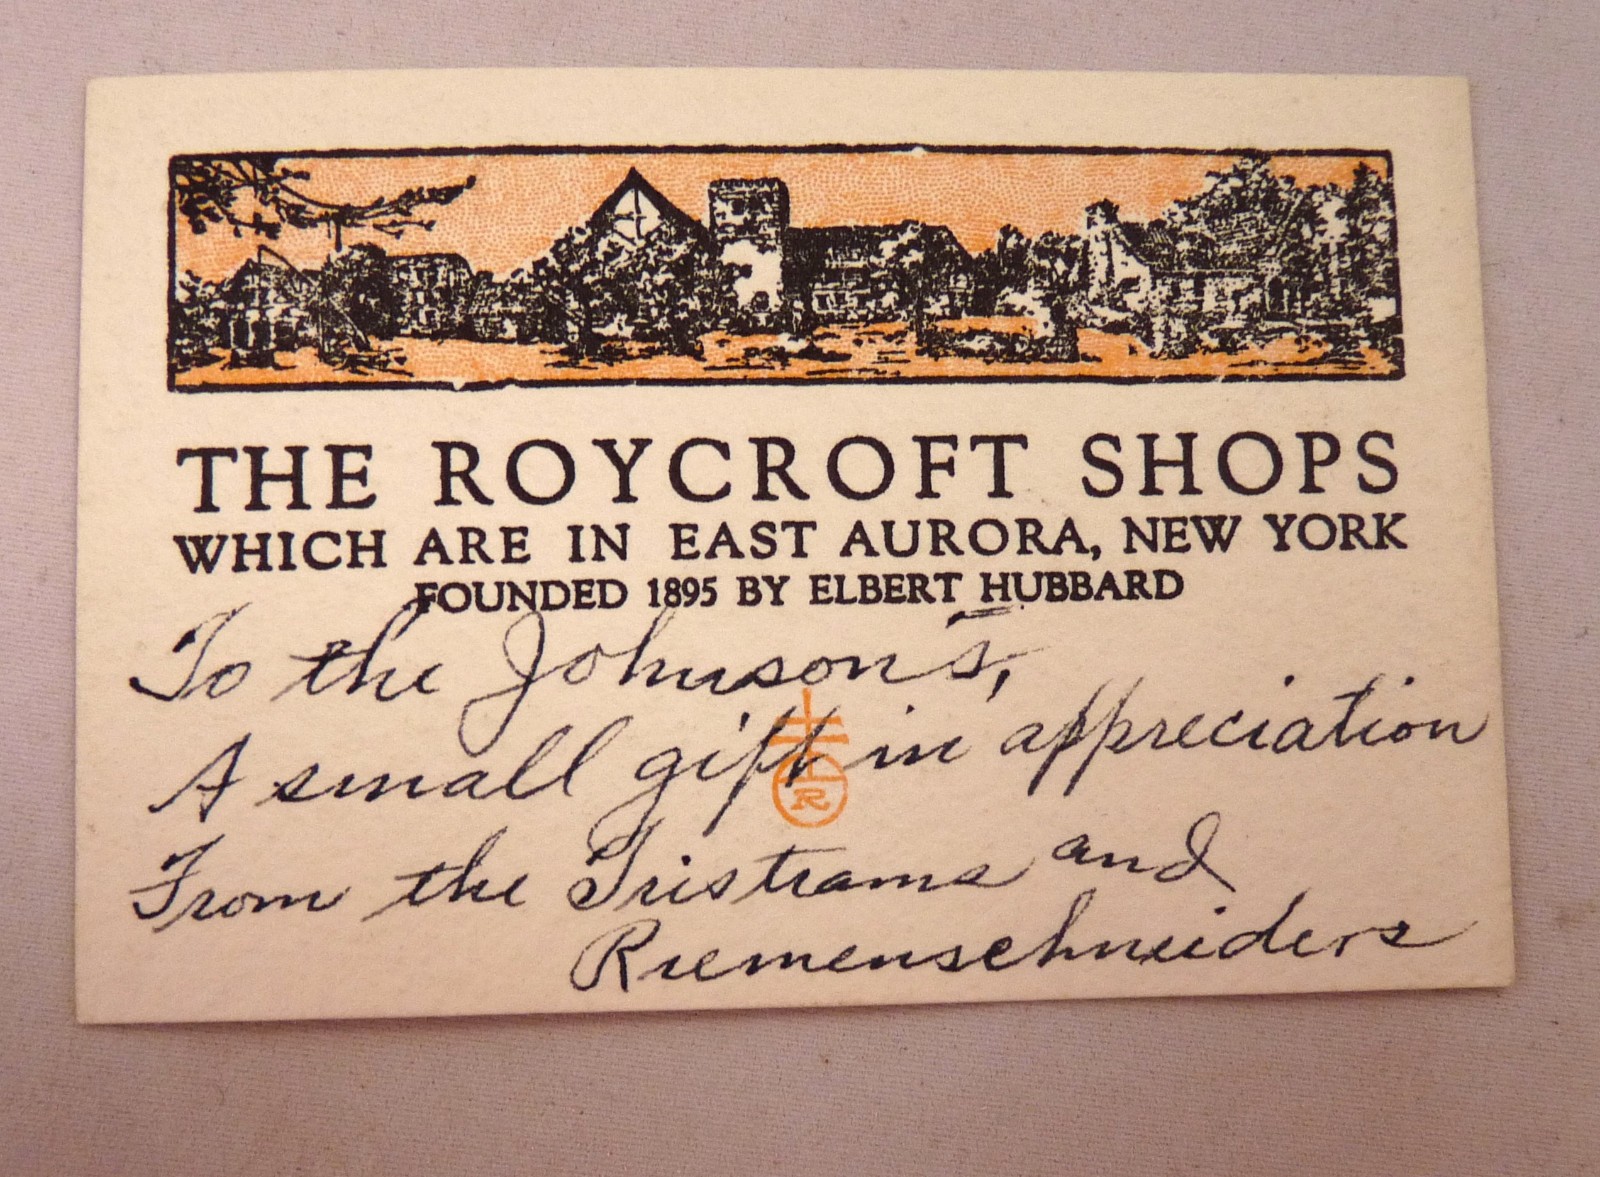 THE ROYCROFT SHOPS
WHICH ARE IN EAST AURORA, NEW YORK
FOUNDED 1895 BY ELBERT HUBBARD
To the Johnson's,
A small gift in appreciation
R
From the Tristrams and
Riemenschneiders